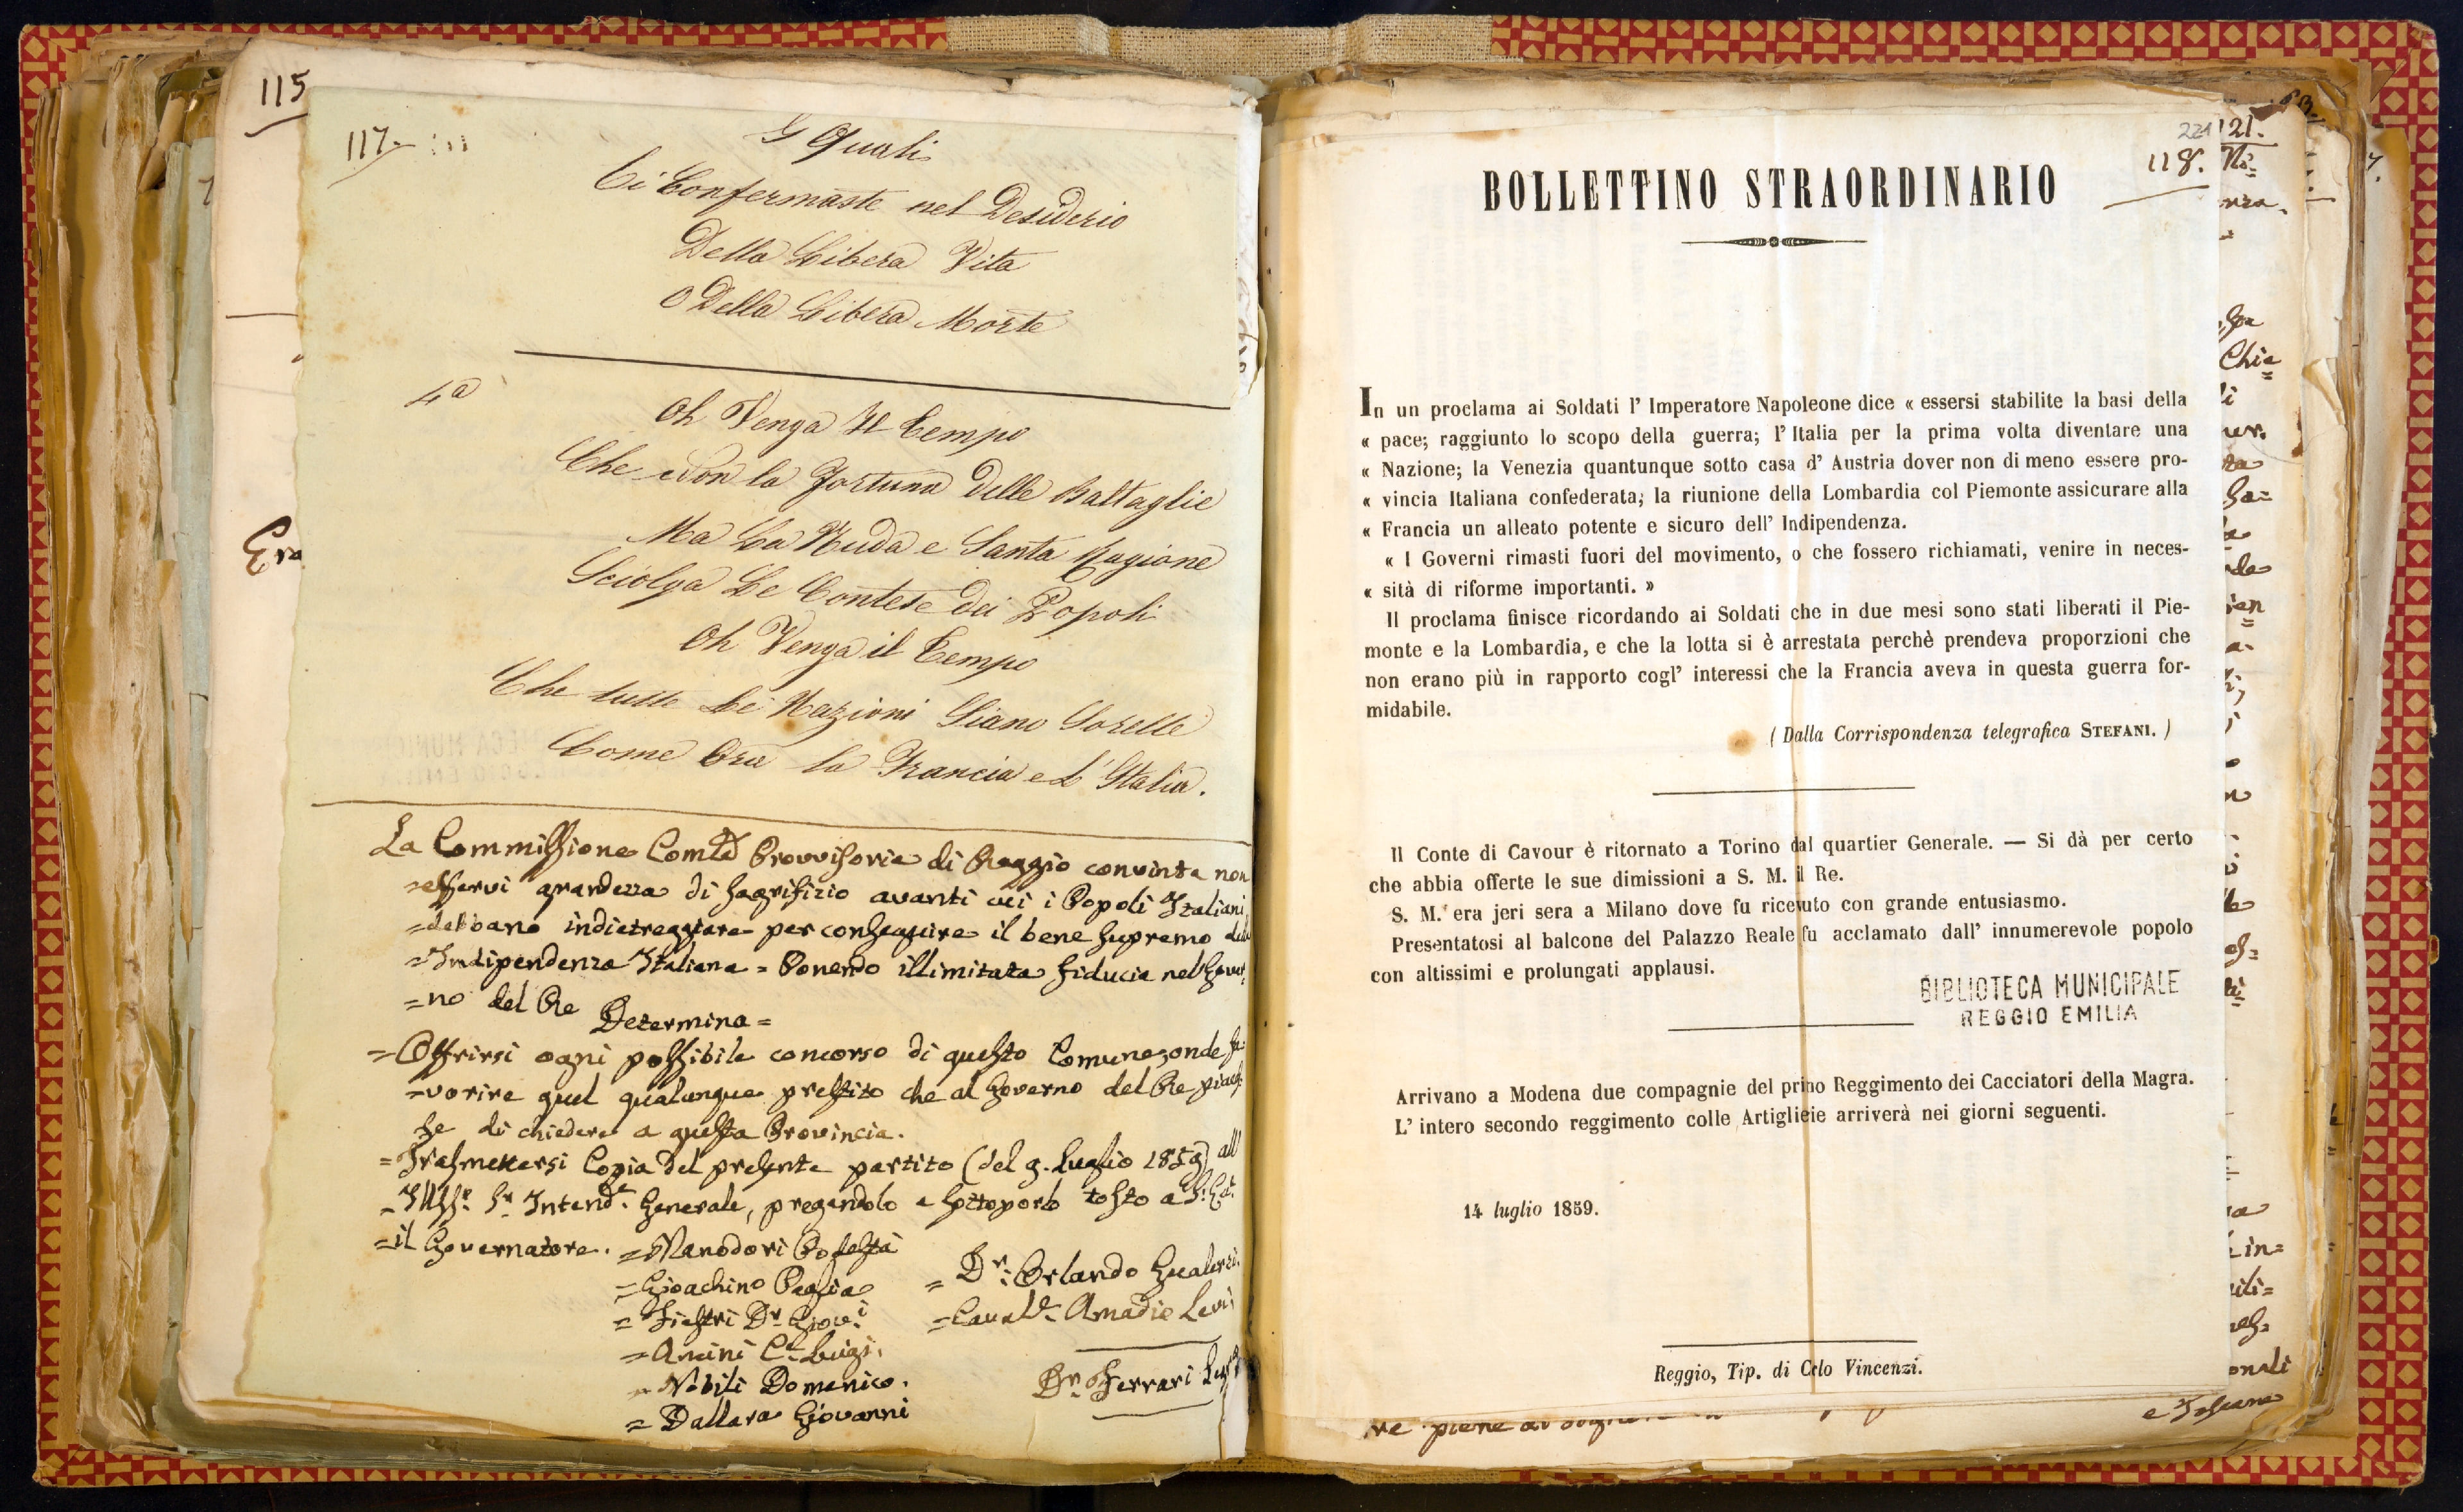 115
117.
I Quali
Ci Confermaste nel Desiderio
Della Libera Vita
O Della Libera Morte
4ª
Oh Venga Il Tempo
Che Non la Fortuna Delle Battaglie
Ma La Nuda e Santa Ragione
Sciolga Le Contese Dei Popoli
Oh Venga il Tempo
Che tutte Le Nazioni Siano Sorelle
Come Ora la Francia e L'Italia.
Era
La Commissione Provvisoria di Reggio convinta non
=esservi grandezza di sagrifizio avanti cui i Popoli Italiani
=debbano indietreggiare per conseguire il bene supremo della
=Indipendenza Italiana = Ponendo illimitata fiducia nel Gover
=no del Re
Determina =
=Offrirsi ogni possibile concorso di questo Comune, onde fa
=vorire quel qualunque prestito che al Governo del Re piaces
se di chiedere a questa Provincia.
=Trasmettersi Copia del presente partito (del 9. Luglio 1859) all'
=Illss.º Sr. Intend.e Generale, pregandolo a sottoporlo tosto a
=il Governatore.
=Manodori Podestà
=Gioachino Paglia
= Dr. Orlando
= Fiastri Dr. Giov.i
=Caval.e Amadio Levi
=Ancini Ce. Luigi.
= Nobili Domenico.
Dr. Ferrari
= Dallara Giovanni
221
121.
118.
BOLLETTINO STRAORDINARIO
In un proclama ai Soldati l' Imperatore Napoleone dice « essersi stabilite la basi della
« pace; raggiunto lo scopo della guerra; l' Italia per la prima volta diventare una
« Nazione; la Venezia quantunque sotto casa d' Austria dover non di meno essere pro-
« vincia Italiana confederata; la riunione della Lombardia col Piemonte assicurare alla
« Francia un alleato potente e sicuro dell' Indipendenza.
« I Governi rimasti fuori del movimento, o che fossero richiamati, venire in neces-
« sità di riforme importanti. »
Il proclama finisce ricordando ai Soldati che in due mesi sono stati liberati il Pie-
monte e la Lombardia, e che la lotta si è arrestata perchè prendeva proporzioni che
non erano più in rapporto cogl' interessi che la Francia aveva in questa guerra for-
midabile.
( Dalla Corrispondenza telegrafica STEFANI. )
Il Conte di Cavour è ritornato a Torino dal quartier Generale. — Si dà per certo
che abbia offerte le sue dimissioni a S. M. il Re.
S. M. era jeri sera a Milano dove fu ricevuto con grande entusiasmo.
Presentatosi al balcone del Palazzo Reale fu acclamato dall' innumerevole popolo
con altissimi e prolungati applausi.
BIBLIOTECA MUNICIPALE
REGGIO EMILIA
Arrivano a Modena due compagnie del primo Reggimento dei Cacciatori della Magra.
L' intero secondo reggimento colle Artiglieie arriverà nei giorni seguenti.
14 luglio 1859.
Reggio, Tip. di Crlo Vincenzi.